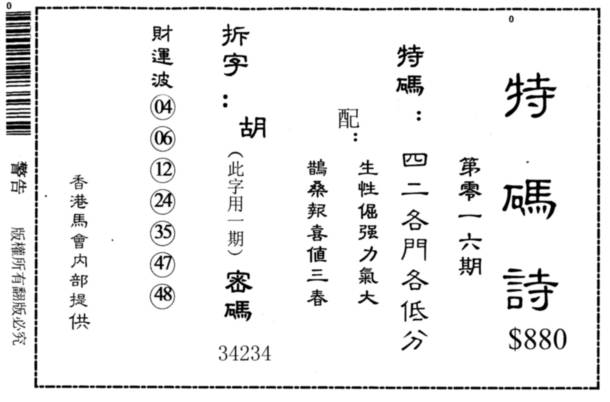 特碼詩
$880
第零一六期
特碼：四二各門各低分
配：
生性倔强力氣大
鵲桑報喜值三春
拆字：胡（此字用一期）密碼
34234
財運波 04 06 12 24 35 47 48
香港馬會內部提供
警告 版權所有翻版必究
0
0